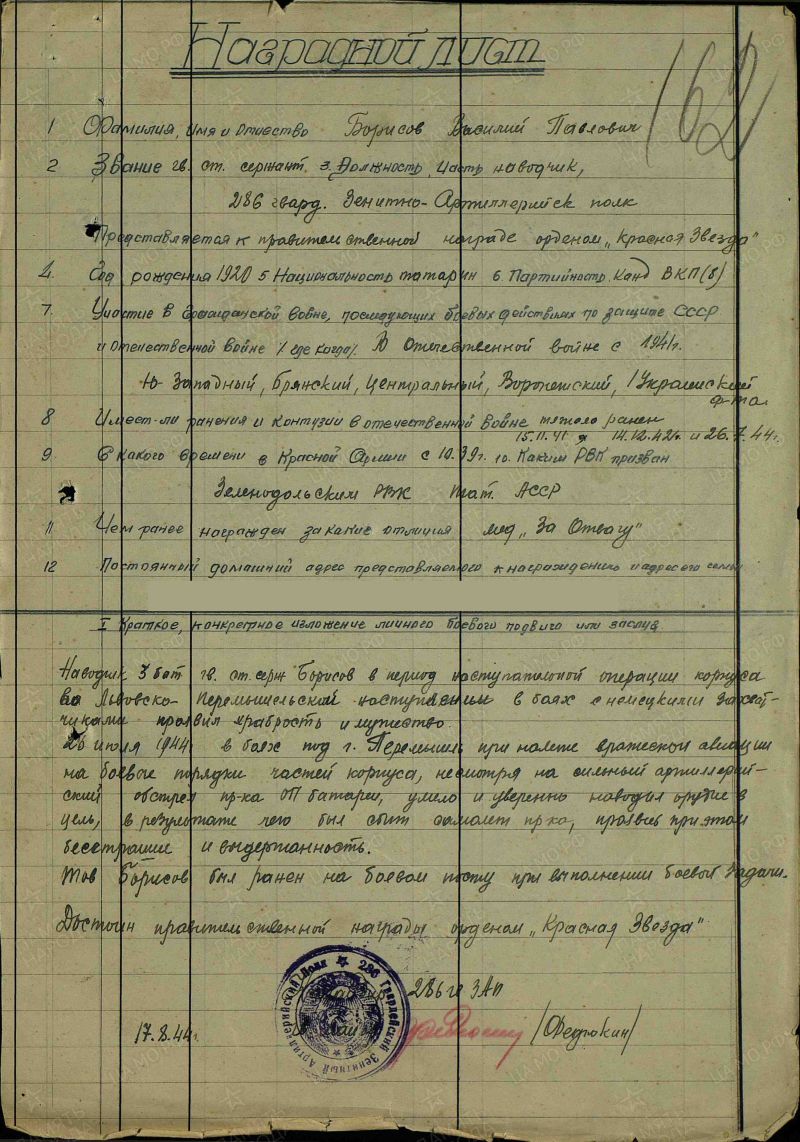 162
Наградной лист
1 Фамилия, Имя и Отчество Борисов Василий Павлович
2 Звание гв. ст. сержант 3. Должность, часть наводчик,
286 гвард. Зенитно-Артиллерийск полк
Представляется к правительственной награде орденом „Красная Звезда"
4. Год рождения 1920 5 Национальность татарин 6. Партийность Канд ВКП(б)
7. Участие в Гражданской войне, последующих боевых действиях по защите СССР
и Отечественной войне /где когда/. В Отечественной войне с 1941г.
Ю-Западный, Брянский, Центральный, Воронежский, 1 Украинский
ф-та
8 Имеет-ли ранения и контузии в отечественной войне тяжело ранен
15.11.41 14.12.42г. и 26.7.44г.
9. С какого времени в Красной Армии с 10.39г. 10. Каким РВК призван
Зеленодольским РВК Тат. АССР
11 Чем ранее награжден за какие отличия мед „За Отвагу"
12 Постоянный домашний адрес представляемого к награждению и адрес его семьи
I Краткое, конкретное изложение личного боевого подвига или заслуг
Наводчик 3 бат гв. ст. серж Борисов в период наступательной операции корпуса
во Львовско-Перемышельской наступлении в боях с немецкими захват-
чиками проявил храбрость и мужество.
26 июля 1944 в боях под г. Перемышль при налете вражеской авиации
на боевые порядки частей корпуса, несмотря на сильный артиллерий-
ский обстрел пр-ка ОП батареи, умело и уверенно наводил орудие в
цель, в результате чего был сбит самолет пр-ка, проявив при этом
бесстрашие и выдержанность.
Тов Борисов был ранен на боевом посту при выполнении боевой задачи.
Достоин правительственной награды орденом „Красная Звезда"
286 гв ЗАП
17.8.44г. /Федюкин/
286 Гвардейский Зенитный Артиллерийский Полк